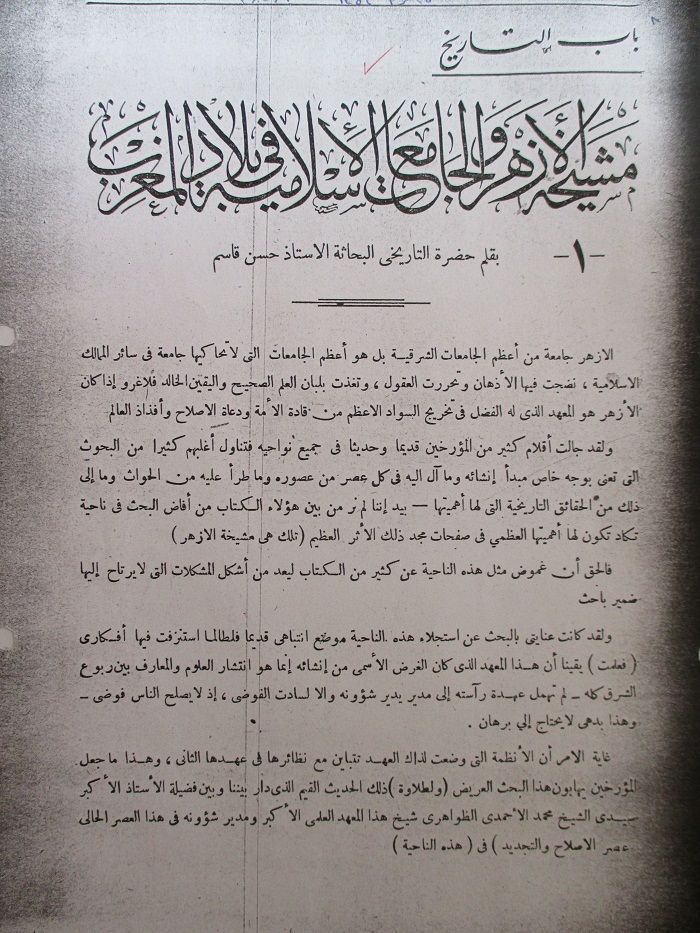 باب التاريخ
مشيخة الأزهر والجامعات الإسلامية في بلاد المغرب
-١-
بقلم حضرة التاريخى البحاثة الاستاذ حسن قاسم
الازهر جامعة من أعظم الجامعات الشرقية بل هو أعظم الجامعات التى لا تحاكيها جامعة فى سائر الممالك
الاسلامية ، نضجت فيها الأذهان وتحررت العقول ، وتغذت بلبان العلم الصحيح واليقين الخالد فلاغرو إذا كان
الأزهر هو المعهد الذى له الفضل فى تخريج السواد الاعظم من قادة الأمة ودعاة الاصلاح وأفذاذ العالم
ولقد جالت أقلام كثير من المؤرخين قديما وحديثا فى جميع نواحيه فتناول أغلبهم كثيرا من البحوث
التى تعنى بوجه خاص مبدأ إنشائه وما آل اليه فى كل عصر من عصوره وما طرأ عليه من الحواث وما إلى
ذلك من الحقائق التاريخية التى لها أهميتها — بيد إننا لم نر من بين هؤلاء الكتاب من أفاض البحث فى ناحية
تكاد تكون لها أهميتها العظمي فى صفحات مجد ذلك الأثر العظيم ( تلك هى مشيخة الازهر )
فالحق أن غموض مثل هذه الناحية عن كثير من الكتاب ليعد من أشكل المشكلات التى لا يرتاح إليها
ضمير باحث
ولقد كانت عنايتى بالبحث عن استجلاء هذه الناحية موضع انتباهى قديما فلطالما استنزفت فيها أفكارى
( فعلمت ) يقينا أن هذا المعهد الذى كان الغرض الأسمى من إنشائه إنما هو انتشار العلوم والمعارف بين ربوع
الشرق كله ــ لم تهمل عهدة رآسته إلى مدير يدير شؤونه والا لسادت الفوضى ، إذ لا يصلح الناس فوضى ــ
وهذا بدهى لا يحتاج إلي برهان .
غاية الامر أن الأنظمة التى وضعت لذاك العهد تتباين مع نظائرها فى عهدها الثانى ، وهذا ما جعل
المؤرخين يهابون هذا البحث العريض ( ولطلاوة ) ذلك الحديث القيم الذى دار بيننا وبين فضيلة الأستاذ الأكبر
سيدى الشيخ محمد الأحمدى الظواهرى شيخ هذا المعهد العلمى الأكبر ومدير شؤونه فى هذا العصر الحالى
عصر الاصلاح والتجديد ) فى ( هذه الناحية )